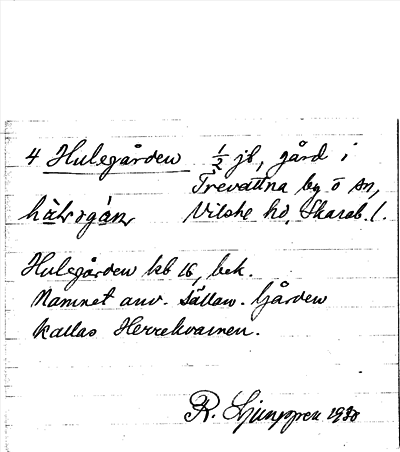 4 Hulegården 1/2 jb, gård i
Trevattna by o sn,
Vilske hd, Skarab. l.
Hulegården kb 16, bek.
Namnet anv. sällan. Gården
kallas Herrekvarnen.
R. Ljunggren 1930